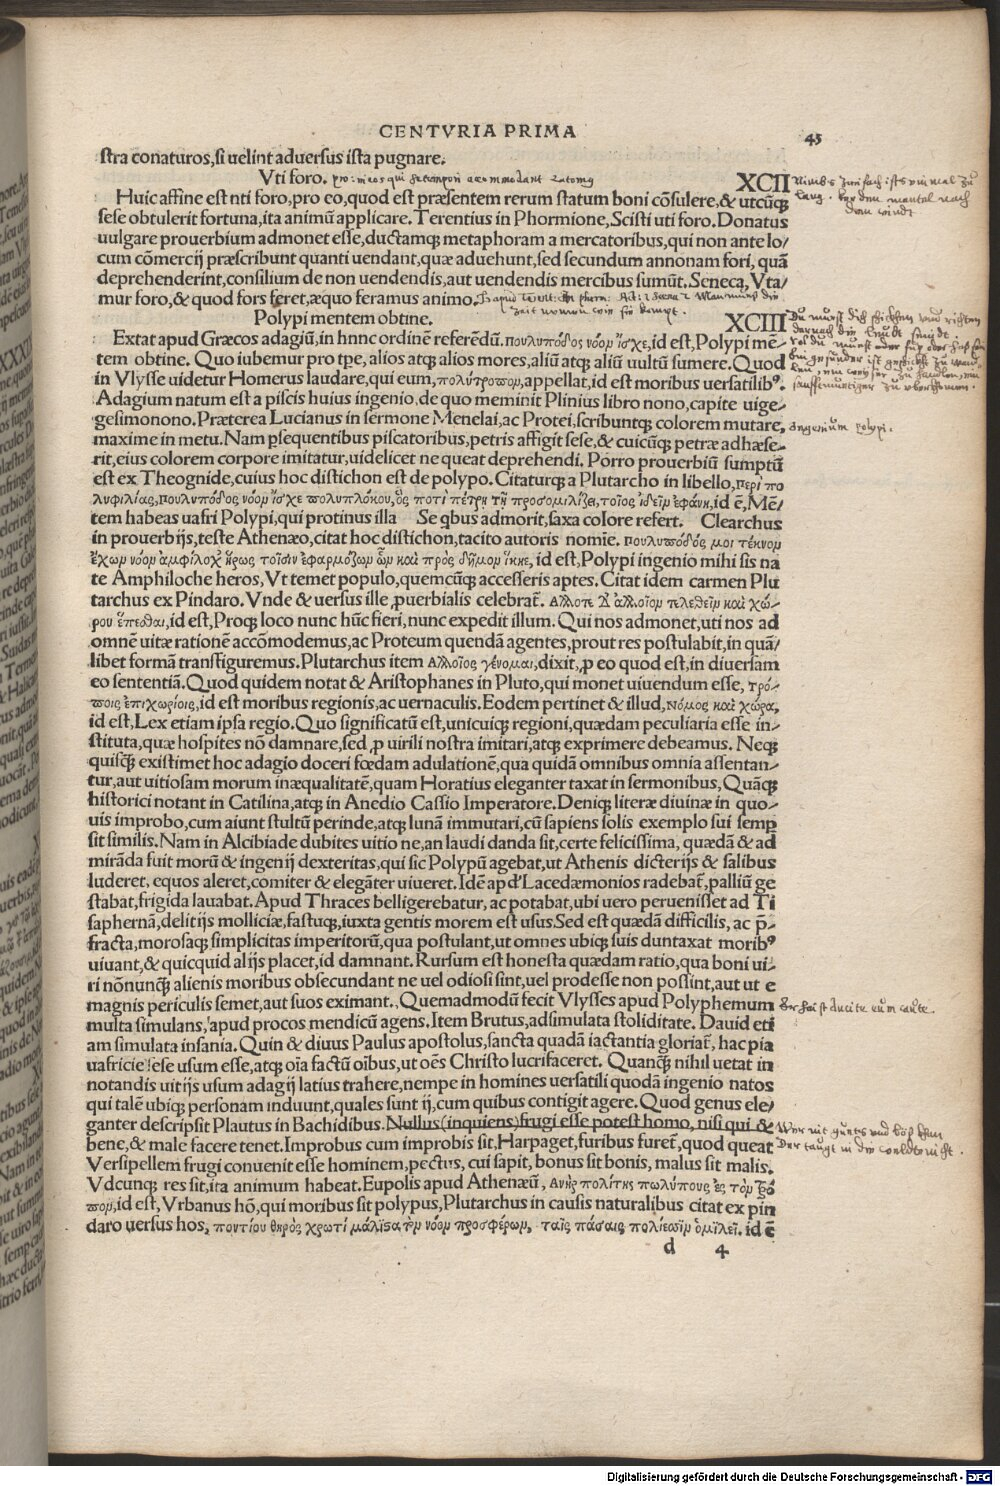 CENTVRIA PRIMA
45
stra conaturos, si uelint aduersus ista pugnare.
Vti foro.
XCII
Huic affine est nti foro, pro eo, quod est præsentem rerum statum boni cõsulere, & utcũqꝫ
sese obtulerit fortuna, ita animũ applicare. Terentius in Phormione, Scisti uti foro. Donatus
uulgare prouerbium admonet esse, ductamqꝫ metaphoram a mercatoribus, qui non ante lo/
cum cõmercij præscribunt quanti uendant, quæ aduehunt, sed secundum annonam fori, quã
deprehenderint, consilium de non uendendis, aut uendendis mercibus sumũt. Seneca, Vta/
mur foro, & quod fors feret, æquo feramus animo.
Polypi mentem obtine.
XCIII
Extat apud Græcos adagiũ, in hnnc ordinẽ referẽdũ. πουλυπόδος νόομ ἴσχε, id est, Polypi mẽ-
tem obtine. Quo iubemur pro tꝑe, alios atqꝫ alios mores, aliũ atqꝫ aliũ uultũ sumere. Quod
in Vlysse uidetur Homerus laudare, qui eum, πολύτροπομ, appellat, id est moribus uersatilibꝰ.
Adagium natum est a piscis huius ingenio, de quo meminit Plinius libro nono, capite uige-
gesimonono. Præterea Lucianus in sermone Menelai, ac Protei, scribuntqꝫ colorem mutare,
maxime in metu. Nam ꝑsequentibus piscatoribus, petris affigit sese, & cuicũqꝫ petræ adhæse-
rit, eius colorem corpore imitatur, uidelicet ne queat deprehendi. Porro prouerbiũ sumptũ
est ex Theognide, cuius hoc distichon est de polypo. Citaturqꝫ a Plutarcho in libello, περὶ πο
λυφιλίας, πουλυπόδος νόομ ἴσχε πολυπλόκου, ὃς ποτὶ πέτρῃ τῇ προσομιλήσει, τοῖος ἰδεῖμ ἐφάνη, id ẽ, Mẽ/
tem habeas uafri Polypi, qui protinus illa Se qbus admorit, saxa colore refert. Clearchus
in prouerbijs, teste Athenæo, citat hoc distichon, tacito autoris nomie. πουλυποδός μοι τέκνομ
ἔχωμ νόομ ἀμφίλοχ' ἥρως τοῖσιν ἐφαρμόζωμ ὧμ καὶ πρὸς δῆμομ ἵκηε, id est, Polypi ingenio mihi sis na
te Amphiloche heros, Vt temet populo, quemcũqꝫ accesseris aptes. Citat idem carmen Plu
tarchus ex Pindaro. Vnde & uersus ille ꝓuerbialis celebrat̃. Ἄλλοτε δ' ἀλλοῖομ τελέθειμ καὶ χώ-
ρου ἕπεσθαι, id est, Proqꝫ loco nunc hũc fieri, nunc expedit illum. Qui nos admonet, uti nos ad
omnẽ uitæ rationẽ accõmodemus, ac Proteum quendã agentes, prout res postulabit, in quã/
libet formã transfiguremus. Plutarchus item Ἀλλοῖος γένομαι, dixit, ꝓ eo quod est, in diuersam
eo sententiã. Quod quidem notat & Aristophanes in Pluto, qui monet uiuendum esse, τρό-
ποις ἐπιχωρίοις, id est moribus regionis, ac uernaculis. Eodem pertinet & illud, Νόμος καὶ χώρα,
id est, Lex etiam ipsa regio. Quo significatũ est, unicuiqꝫ regioni, quædam peculiaria esse in-
stituta, quæ hospites nõ damnare, sed ꝓ uirili nostra imitari, atqꝫ exprimere debeamus. Neqꝫ
quisqꝫ̃ existimet hoc adagio doceri fœdam adulationẽ, qua quidã omnibus omnia assentan-
tur, aut uitiosam morum inæqualitatẽ, quam Horatius eleganter taxat in sermonibus, Quãqꝫ
historici notant in Catilina, atqꝫ in Anedio Cassio Imperatore. Deniqꝫ literæ diuinæ in quo-
uis improbo, cum aiunt stultũ perinde, atqꝫ lunã immutari, cũ sapiens solis exemplo sui semꝑ
sit similis. Nam in Alcibiade dubites uitio ne, an laudi danda sit, certe felicissima, quædã & ad
mirãda fuit morũ & ingenij dexteritas, qui sic Polypũ agebat, ut Athenis dicterijs & salibus
luderet, equos aleret, comiter & elegãter uiueret. Idẽ apd' Lacedæmonios radebat̃, palliũ ge
stabat, frigida lauabat. Apud Thraces belligerebatur, ac potabat, ubi uero peruenisset ad Ti
saphernã, delitijs molliciæ, fastuqꝫ, iuxta gentis morem est usus. Sed est quædã difficilis, ac p̃-
fracta, morosaqꝫ simplicitas imperitorũ, qua postulant, ut omnes ubiqꝫ suis duntaxat moribꝰ
uiuant, & quicquid alijs placet, id damnant. Rursum est honesta quædam ratio, qua boni ui-
ri nõnunqꝫ̃ alienis moribus obsecundant ne uel odiosi sint, uel prodesse non possint, aut ut e
magnis periculis semet, aut suos eximant. Quemadmodũ fecit Vlysses apud Polyphemum
multa simulans, apud procos mendicũ agens. Item Brutus, adsimulata stoliditate. Dauid eti
am simulata insania. Quin & diuus Paulus apostolus, sancta quadã iactantia gloriat̃, hac pia
uafricie sese usum esse, atqꝫ oĩa factũ oĩbus, ut oẽs Christo lucrifaceret. Quanqꝫ̃ nihil uetat in
notandis uitijs usum adagij latius trahere, nempe in homines uersatili quodã ingenio natos
qui talẽ ubiqꝫ personam induunt, quales sunt ij, cum quibus contigit agere. Quod genus ele/
ganter descripsit Plautus in Bachidibus. Nullus (inquiens) frugi esse potest homo, nisi qui &
bene, & male facere tenet. Improbus cum improbis sit, Harpaget, furibus furet̃, quod queat
Versipellem frugi conuenit esse hominem, pectus, cui sapit, bonus sit bonis, malus sit malis.
Vdcunqꝫ res sit, ita animum habeat. Eupolis apud Athenæũ, Ἀνὴρ πολίτης πωλύπους ἐς τὸμ τρό
πομ, id est, Vrbanus hõ, qui moribus sit polypus, Plutarchus in causis naturalibus citat ex pin
daro uersus hos, ποντίου θηρὸς χρωτὶ μάλιστα τὸμ νόομ προσφέρωμ, ταῖς πάσαις πολίεσσιμ ὁμίλει. id ẽ
d 4
ingenium polypi.
Digitalisierung gefördert durch die Deutsche Forschungsgemeinschaft - DFG